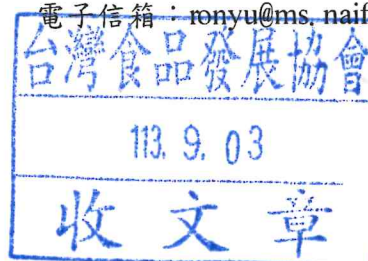 電子信箱：ronyu@ms.naif
台灣食品發展協會
113. 9. 03
收文章